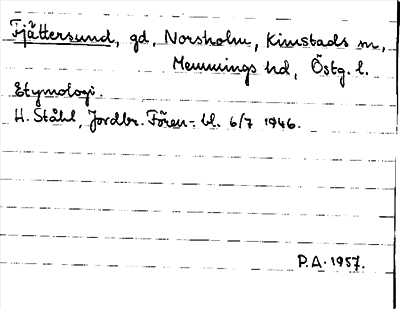 Fjättersund, gd, Norsholm, Kimstads sn,
Memmings hd, Östg. l.
Etymologi.
H. Ståhl, Jordbr. Fören:- bl. 6/7 1946.
P.A. 1957.